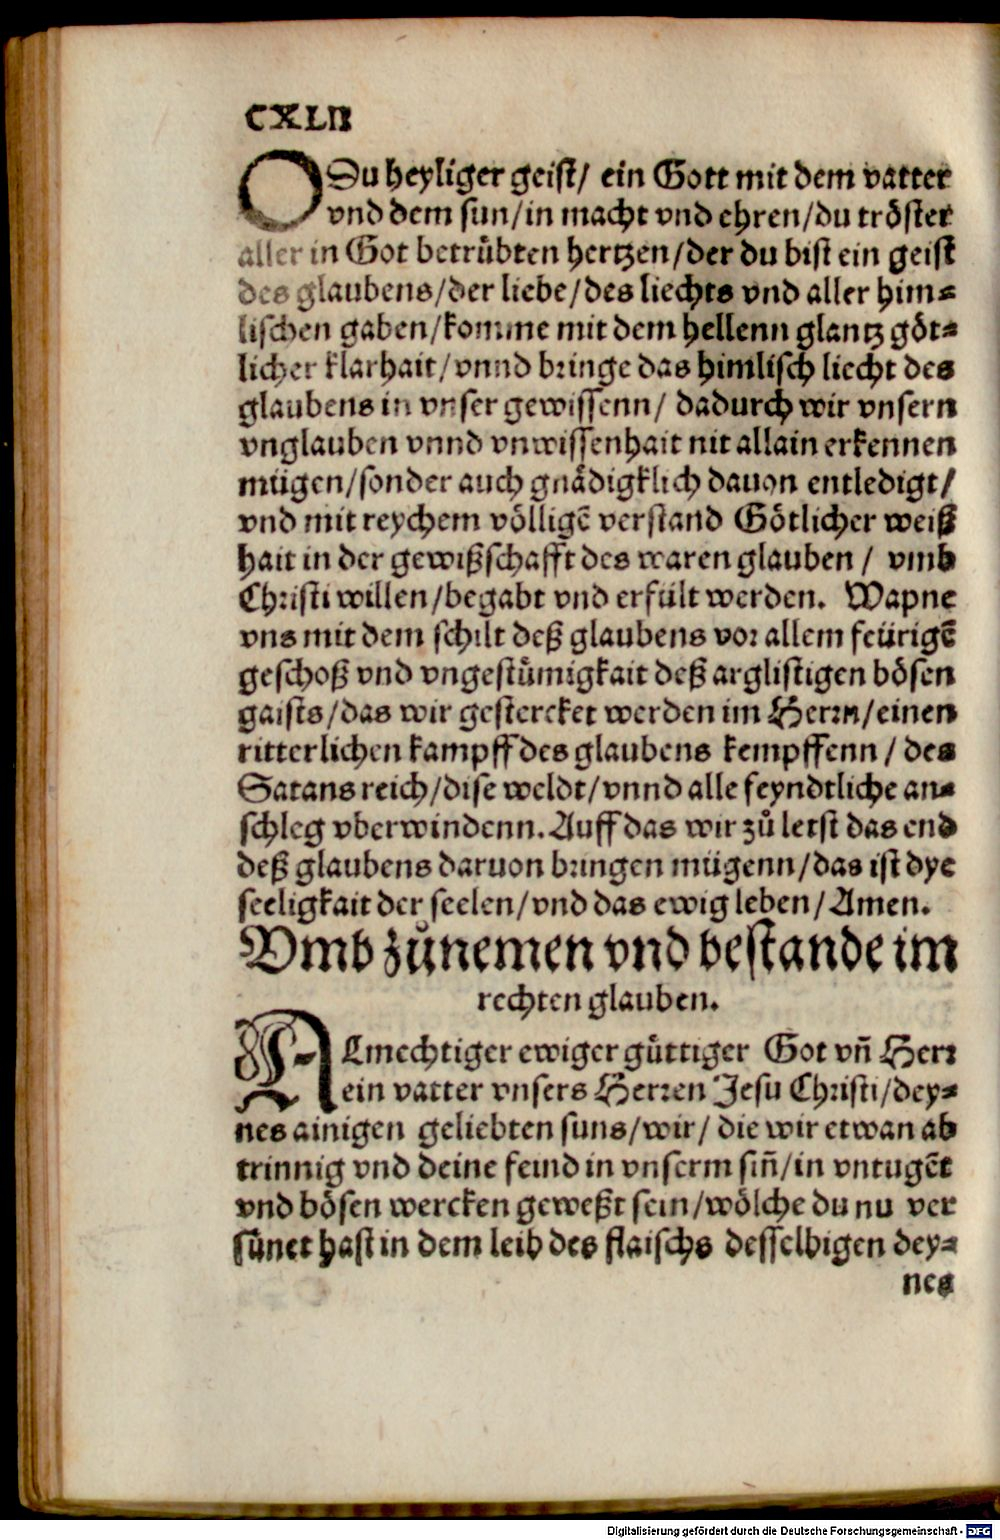 CXLII
ODu heyliger geist/ ein Gott mit dem vatter
vnd dem sun/in macht vnd ehren/du tröster
aller in Got betrůbten hertzen/der du bist ein geist
des glaubens/der liebe/des liechts vnd aller him⸗
lischen gaben/komme mit dem hellenn glantz göt⸗
licher klarhait/vnnd bringe das himlisch liecht des
glaubens in vnser gewissenn/ dadurch wir vnsern
vnglauben vnnd vnwissenhait nit allain erkennen
mügen/sonder auch gnådigklich dauon entledigt/
vnd mit reychem völligē verstand Götlicher weiß
hait in der gewißschafft des waren glauben / vmb
Christi willen/begabt vnd erfült werden. Wapne
vns mit dem schilt deß glaubens vor allem feürigē
geschoß vnd vngestůmigkait deß arglistigen bösen
gaists/das wir gestercket werden im Herrn/einen
ritterlichen kampff des glaubens kempffenn / des
Satans reich/dise weldt/vnnd alle feyndtliche an⸗
schleg vberwindenn. Auff das wir zů letst das end
deß glaubens daruon bringen mügenn/das ist dye
seeligkait der seelen/vnd das ewig leben/Amen.
Vmb zůnemen vnd bestande im
rechten glauben.
ALmechtiger ewiger gůttiger Got vñ Herr
ein vatter vnsers Herren Jesu Christi/dey⸗
nes ainigen geliebten suns/wir/ die wir etwan ab
trinnig vnd deine feind in vnserm siñ/in vntugēt
vnd bösen wercken geweßt sein/wölche du nu ver
sůnet hast in dem leib des flaischs desselbigen dey⸗
nes
Digitalisierung gefördert durch die Deutsche Forschungsgemeinschaft - DFG